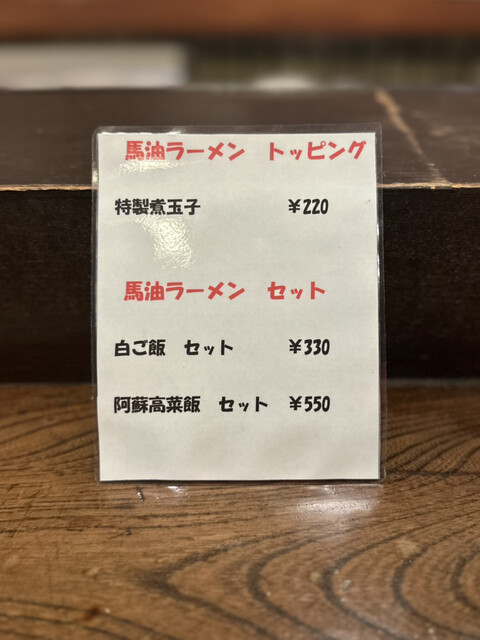 馬油ラーメン　トッピング
特製煮玉子　¥220
馬油ラーメン　セット
白ご飯　セット　¥330
阿蘇高菜飯　セット　¥550